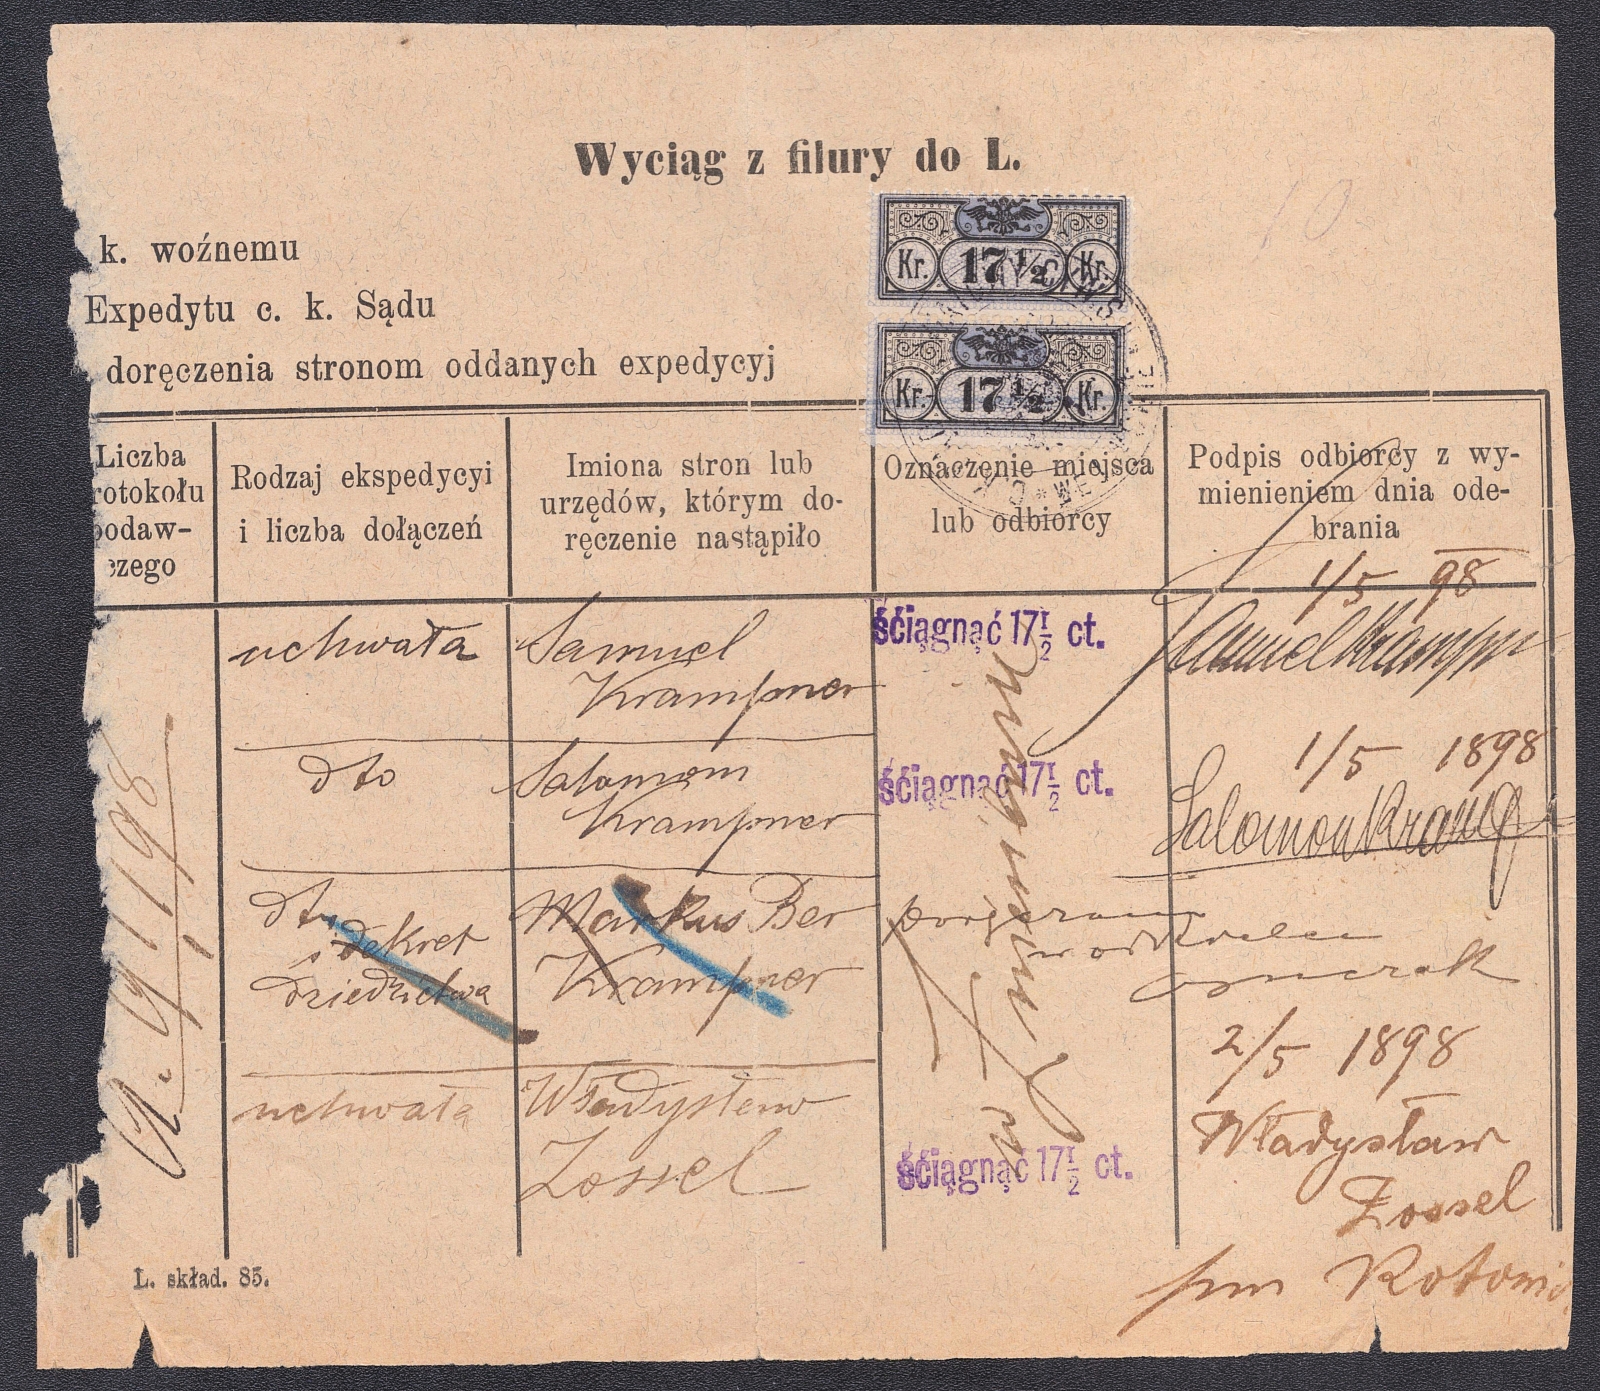 Wyciąg z filury do L.
k. woźnemu
Expedytu c. k. Sądu
doręczenia stronom oddanych expedycyj
Kr. 17 1/2 Kr.
Kr. 17 1/2 Kr.
Liczba
rotokołu
podaw-
czego
Rodzaj ekspedycyi
i liczba dołączeń
Imiona stron lub
urzędów, którym do-
ręczenie nastąpiło
Oznaczenie miejsca
lub odbiorcy
Podpis odbiorcy z wy-
mienieniem dnia ode-
brania
1/5 98
uchwała
Samuel
Krampner
ściągnąć 17 1/2 ct.
Samuel Krampner
dto
Salomon
Krampner
ściągnąć 17 1/2 ct.
1/5 1898
Salomon Kramp
dto
i dekret
dziedzictwa
Markus Ber
Krampner
uchwała
Władysław
Zossel
ściągnąć 17 1/2 ct.
2/5 1898
Władysław
Zossel
L. skład. 85.